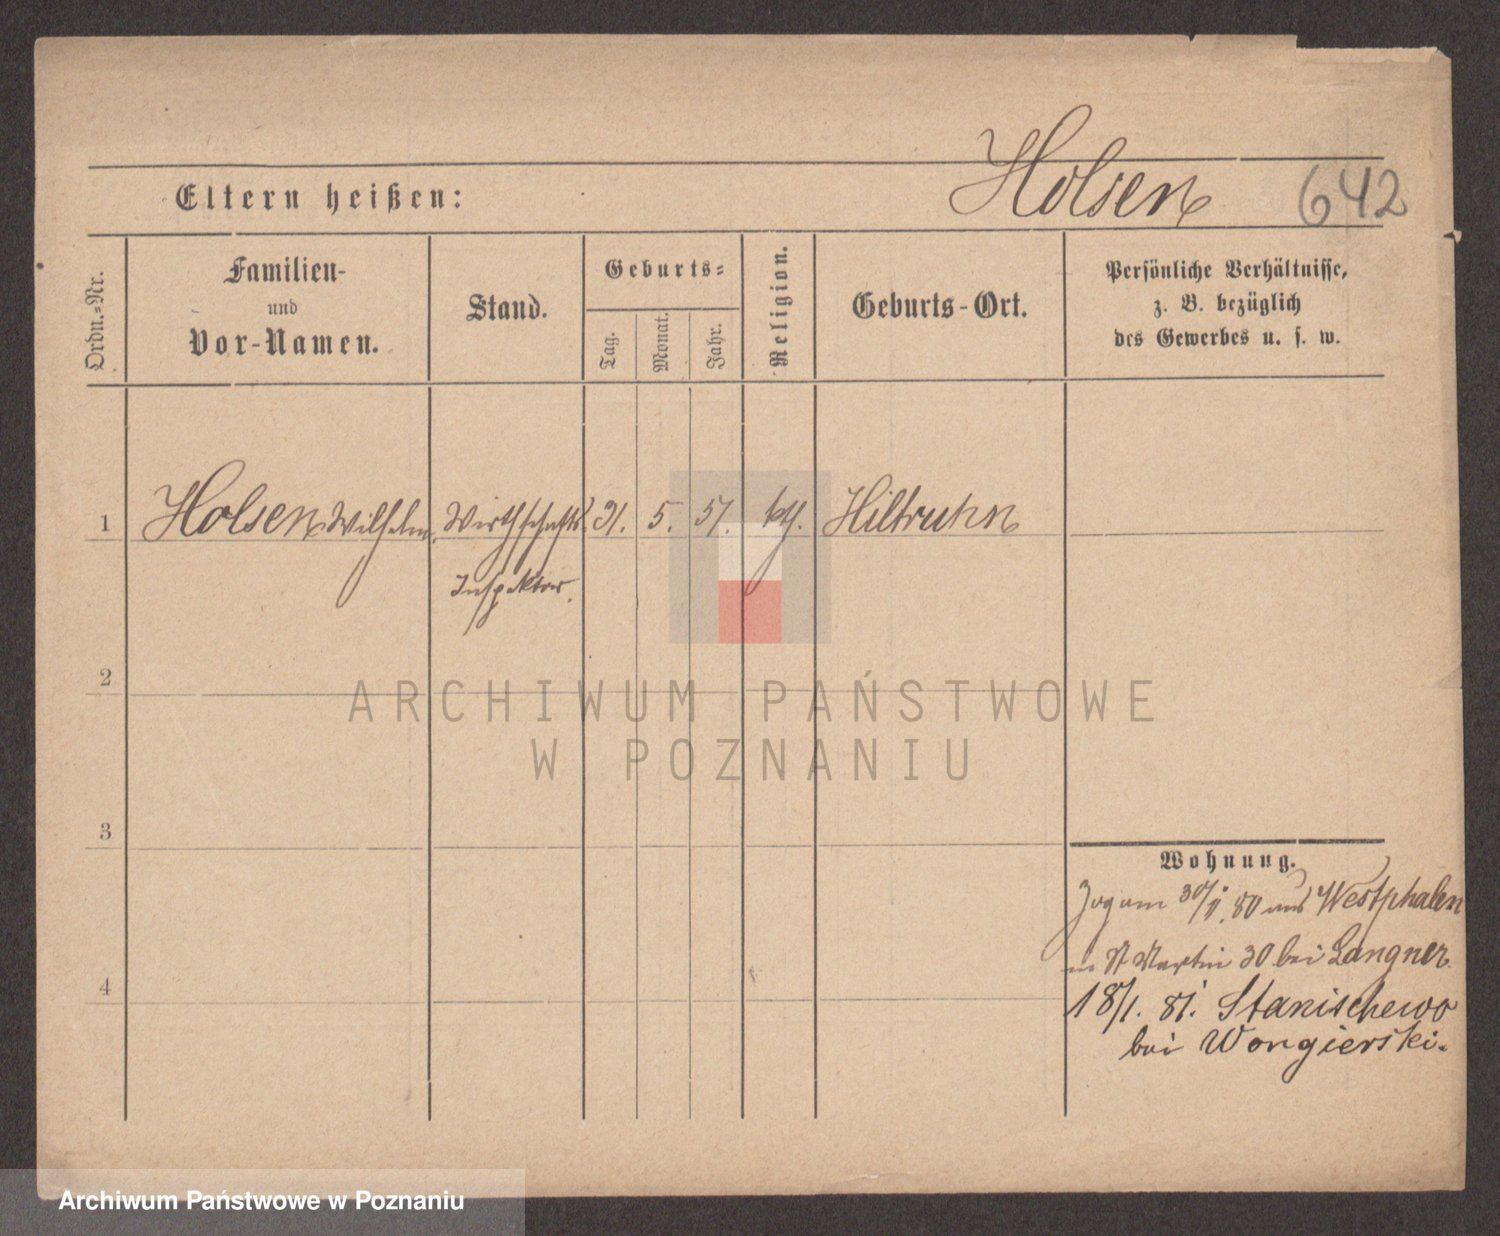 Holsen 642
Eltern heißen:
Ordn.-Nr.
Familien-
und
Vor-Namen.
Stand.
Geburts-
Tag.
Monat.
Jahr.
Religion.
Geburts-Ort.
Persönliche Verhältnisse,
z. B. bezüglich
des Gewerbes u. s. w.
1 Holsen Wilhelm. Wirthschafts 5. 51. kth. Hiltruhn
Inspektor.
2
3
4
Wohnung.
Zog am 80 aus Westphalen
n St Martin 30 bei Langner.
18/1. 81. Stanischewo
bei Wongierski.
ARCHIWUM PAŃSTWOWE
W POZNANIU
Archiwum Państwowe w Poznaniu